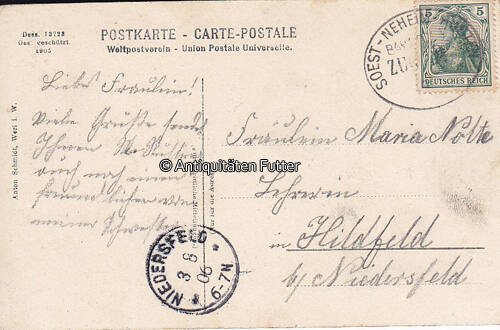 Dess. 13723
Ges. geschützt.
1905
POSTKARTE - CARTE-POSTALE
Weltpostverein - Union Postale Universelle.
SOEST-NEHEI
BAH
ZU
5 5
DEUTSCHES REICH
Liebes Fräulein!
Viele Grüße send
Ihnen
auch noch einen
lieben von
meiner Schwester
Anton Schmidt, Werl i. W.
© Antiquitäten Futter
Fräulein Maria Nolte
Lehrerin
in Hildfeld
b/ Niedersfeld
NIEDERSFELD
3 8
06
6-7N